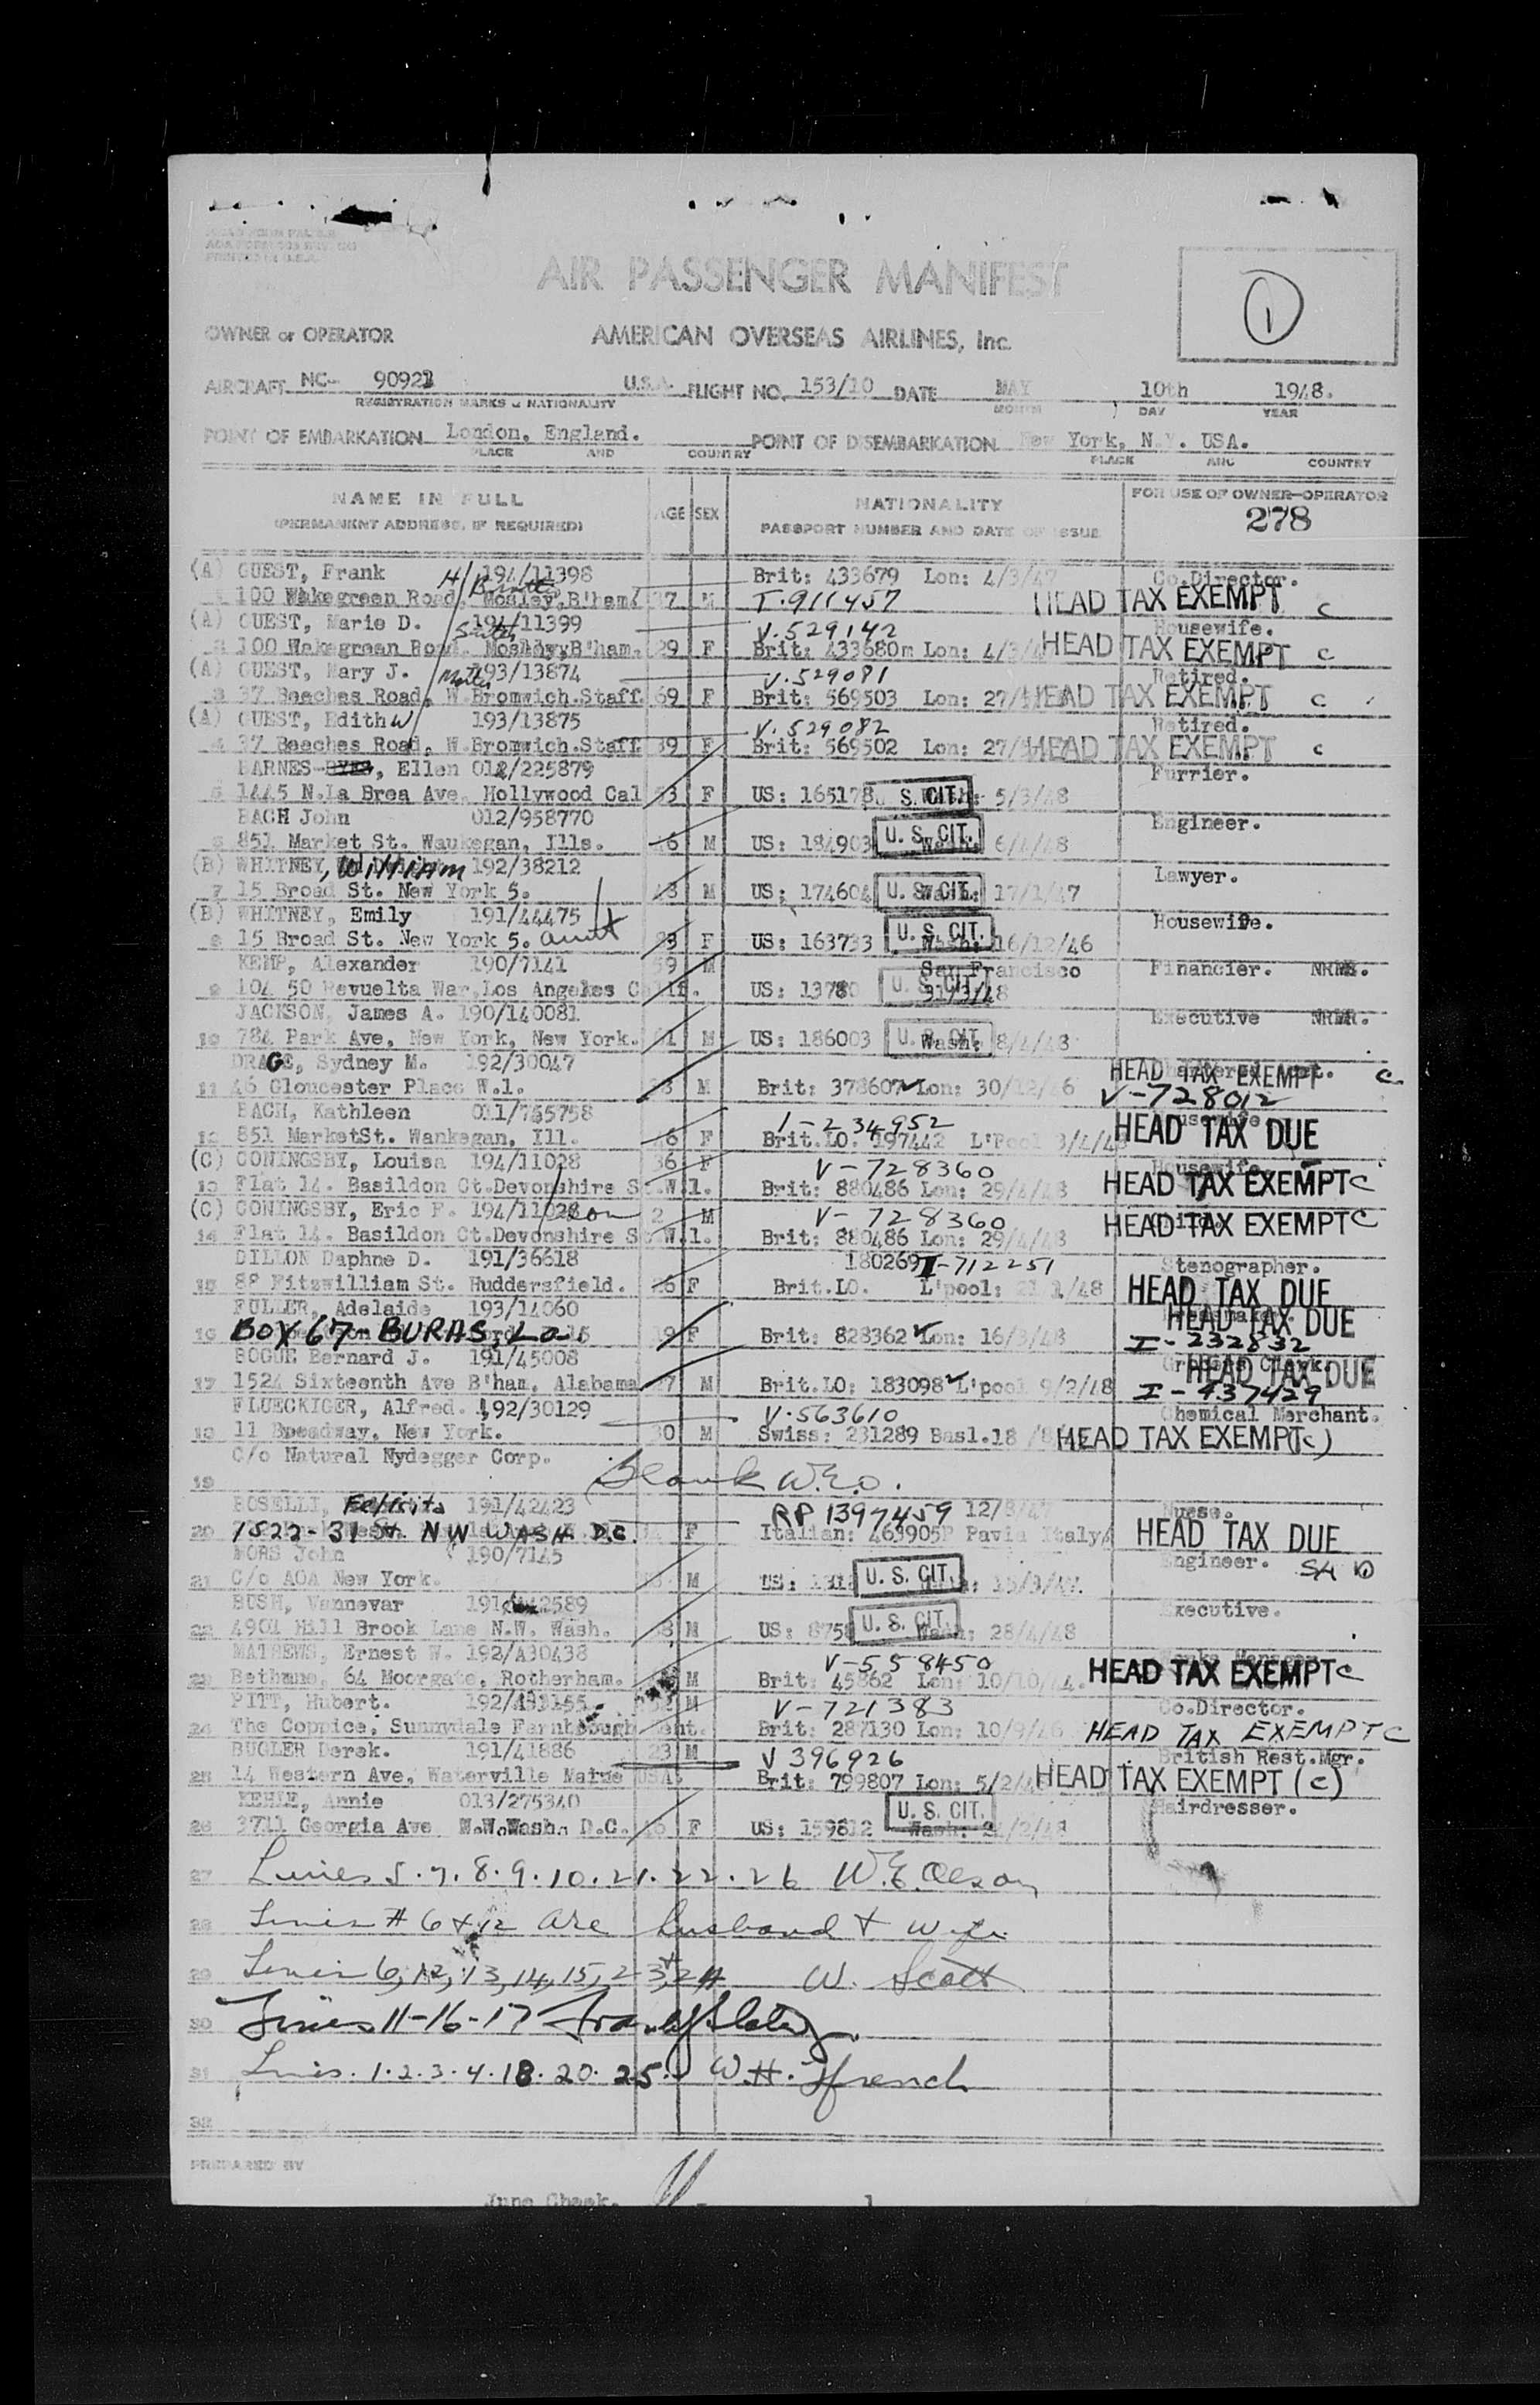 AIR PASSENGER MANIFEST
1
OWNER or OPERATOR AMERICAN OVERSEAS AIRLINES, Inc.
AIRCRAFT NC- U.S.A. FLIGHT NO. 153/10 DATE MAY 10th 1948.
REGISTRATION MARKS & NATIONALITY MONTH DAY YEAR
POINT OF EMBARKATION London, England. POINT OF DISEMBARKATION New York, N.Y. USA.
PLACE AND COUNTRY PLACE AND COUNTRY
NAME IN FULL AGE SEX NATIONALITY FOR USE OF OWNER-OPERATOR
(PERMANENT ADDRESS, IF REQUIRED) PASSPORT NUMBER AND DATE OF ISSUE 278
(A) GUEST, Frank 194/11398 Brit: 433679 Lon: 4/3/47 Co.Director.
1 100 Wakegreen Road, Mosley, B'ham. 37 M T.911457 HEAD TAX EXEMPT C
(A) GUEST, Marie D. 194/11399 V.529142 Housewife.
2 100 Wakegreen Road. B'ham. 29 F Brit: 433680m Lon: 4/3/ HEAD TAX EXEMPT C
(A) GUEST, Mary J. 193/13874 V.529081 Retired.
3 37 Beaches Road, W.Bromwich.Staff. 69 F Brit: 569503 Lon: 27/ HEAD TAX EXEMPT C
(A) GUEST, Edith W 193/13875 V.529082 Retired.
4 37 Beaches Road, W.Bromwich.Staff. 39 F Brit: 569502 Lon: 27/ HEAD TAX EXEMPT C
BARNES- , Ellen 012/225879 Furrier.
5 1445 N.La Brea Ave. Hollywood Cal 53 F US: 165178 U. S. CIT. 5/3/48
BACH John 012/958770 Engineer.
6 851 Market St. Waukegan, Ills. 46 M US: 184903 U. S. CIT. 6/4/48
(B) WHITNEY, William 192/38212 Lawyer.
7 15 Broad St. New York 5. M US: 174604 U. S. CIT. 17/1/47
(B) WHITNEY, Emily 191/44475 Housewife.
8 15 Broad St. New York 5. aunt F US: 163733 U. S. CIT. Wash: 16/12/46
KEMP, Alexander 190/7141 59 M San Francisco Financier. NRMR.
9 104 50 Revuelta War, Los Angeles Calif. US: 13780 U. S. CIT. 31/3/48
JACKSON, James A. 190/140081 Executive NRMR.
10 784 Park Ave, New York, New York. 61 M US: 186003 U. S. CIT. Wash: 8/4/48
DRAGE, Sydney M. 192/30047 HEAD TAX EXEMPT C
11 46 Gloucester Place W.1. M Brit: 378607 Lon: 30/12/46 V-728012
BACH, Kathleen 1-234952
12 851 MarketSt. Wankegan, Ill. 46 F Brit.LO. 197442 L'Pool 3/4/48 HEAD TAX DUE
(C) CONINGSBY, Louisa 194/11028 36 F V-728360 Housewife.
13 Flat 14. Basildon Ct.Devonshire St.W.1. Brit: 880486 Lon: 29/4/48 HEAD TAX EXEMPT C
(C) CONINGSBY, Eric F. 194/11028 son 2 M V-728360 HEAD TAX EXEMPT C
14 Flat 14. Basildon Ct.Devonshire St W.1. Brit: 880486 Lon: 29/4/48
DILLON Daphne D. 191/36618 180269 I-712251 Stenographer.
15 88 Fitzwilliam St. Huddersfield. 26 F Brit.LO. L'pool: /48 HEAD TAX DUE
FULLER, Adelaide 193/14060 HEAD TAX DUE
16 BOX 67-BURAS, La. F Brit: 828362 Lon: 16/3/48 I-232832
BOGUE Bernard J. 191/45008 HEAD TAX DUE
17 1524 Sixteenth Ave B'ham, Alabama M Brit.LO: 183098 L'pool 9/2/48 I-437429
FLUECKIGER, Alfred. 192/30129 V.563610 Chemical Merchant.
18 11 Broadway, New York. 30 M Swiss: 231289 Basl.18 HEAD TAX EXEMPT (C)
C/o Natural Nydegger Corp.
19 Blank W.E.O.
ROSELLI, Felicita 191/42423 RP 1397459 12/8/47 Nurse.
20 1522-31 St. NW WASH D.C. F Italian: 463905P Pavia Italy HEAD TAX DUE
MORS John 190/7145 Engineer.
21 C/o AOA New York. M US: U. S. CIT. 15/3/47.
BUSH, Vannevar Executive.
22 4901 Hill Brook Lane N.W. Wash. 58 M US: 875 U. S. CIT. Wash: 28/4/48
MATHEWS, Ernest W. 192/A30438 V-558450
23 Bethane, 64 Moorgate, Rotherham. M Brit: 45862 Lon: 10/10/44. HEAD TAX EXEMPT C
PITT, Hubert. M V-721383 Co.Director.
24 The Coppice, Sunnydale Farnborough Kent. Brit: 287130 Lon: 10/9/46 HEAD TAX EXEMPT C
BUGLER Derek. 191/41886 23 M V 396926 British Rest.Mgr.
25 14 Western Ave, Waterville Maine USA. Brit: 799807 Lon: 5/2/ HEAD TAX EXEMPT (C)
Annie 013/275340 U. S. CIT. Hairdresser.
26 3711 Georgia Ave N.W.Wash. D.C. F US: 159812 Wash: /2/48
27 Lines 5.7.8.9.10.21.22.26 W.E.Olson
28 Lines # 6 & 12 are husband & wife
29 Lines 6, 12, 13, 14, 15, 23, + 24 W. Scott
30 Lines 11-16-17
31 Lines. 1.2.3.4.18.20.25. W.H. French
32
PREPARED BY
June Cheek. 1